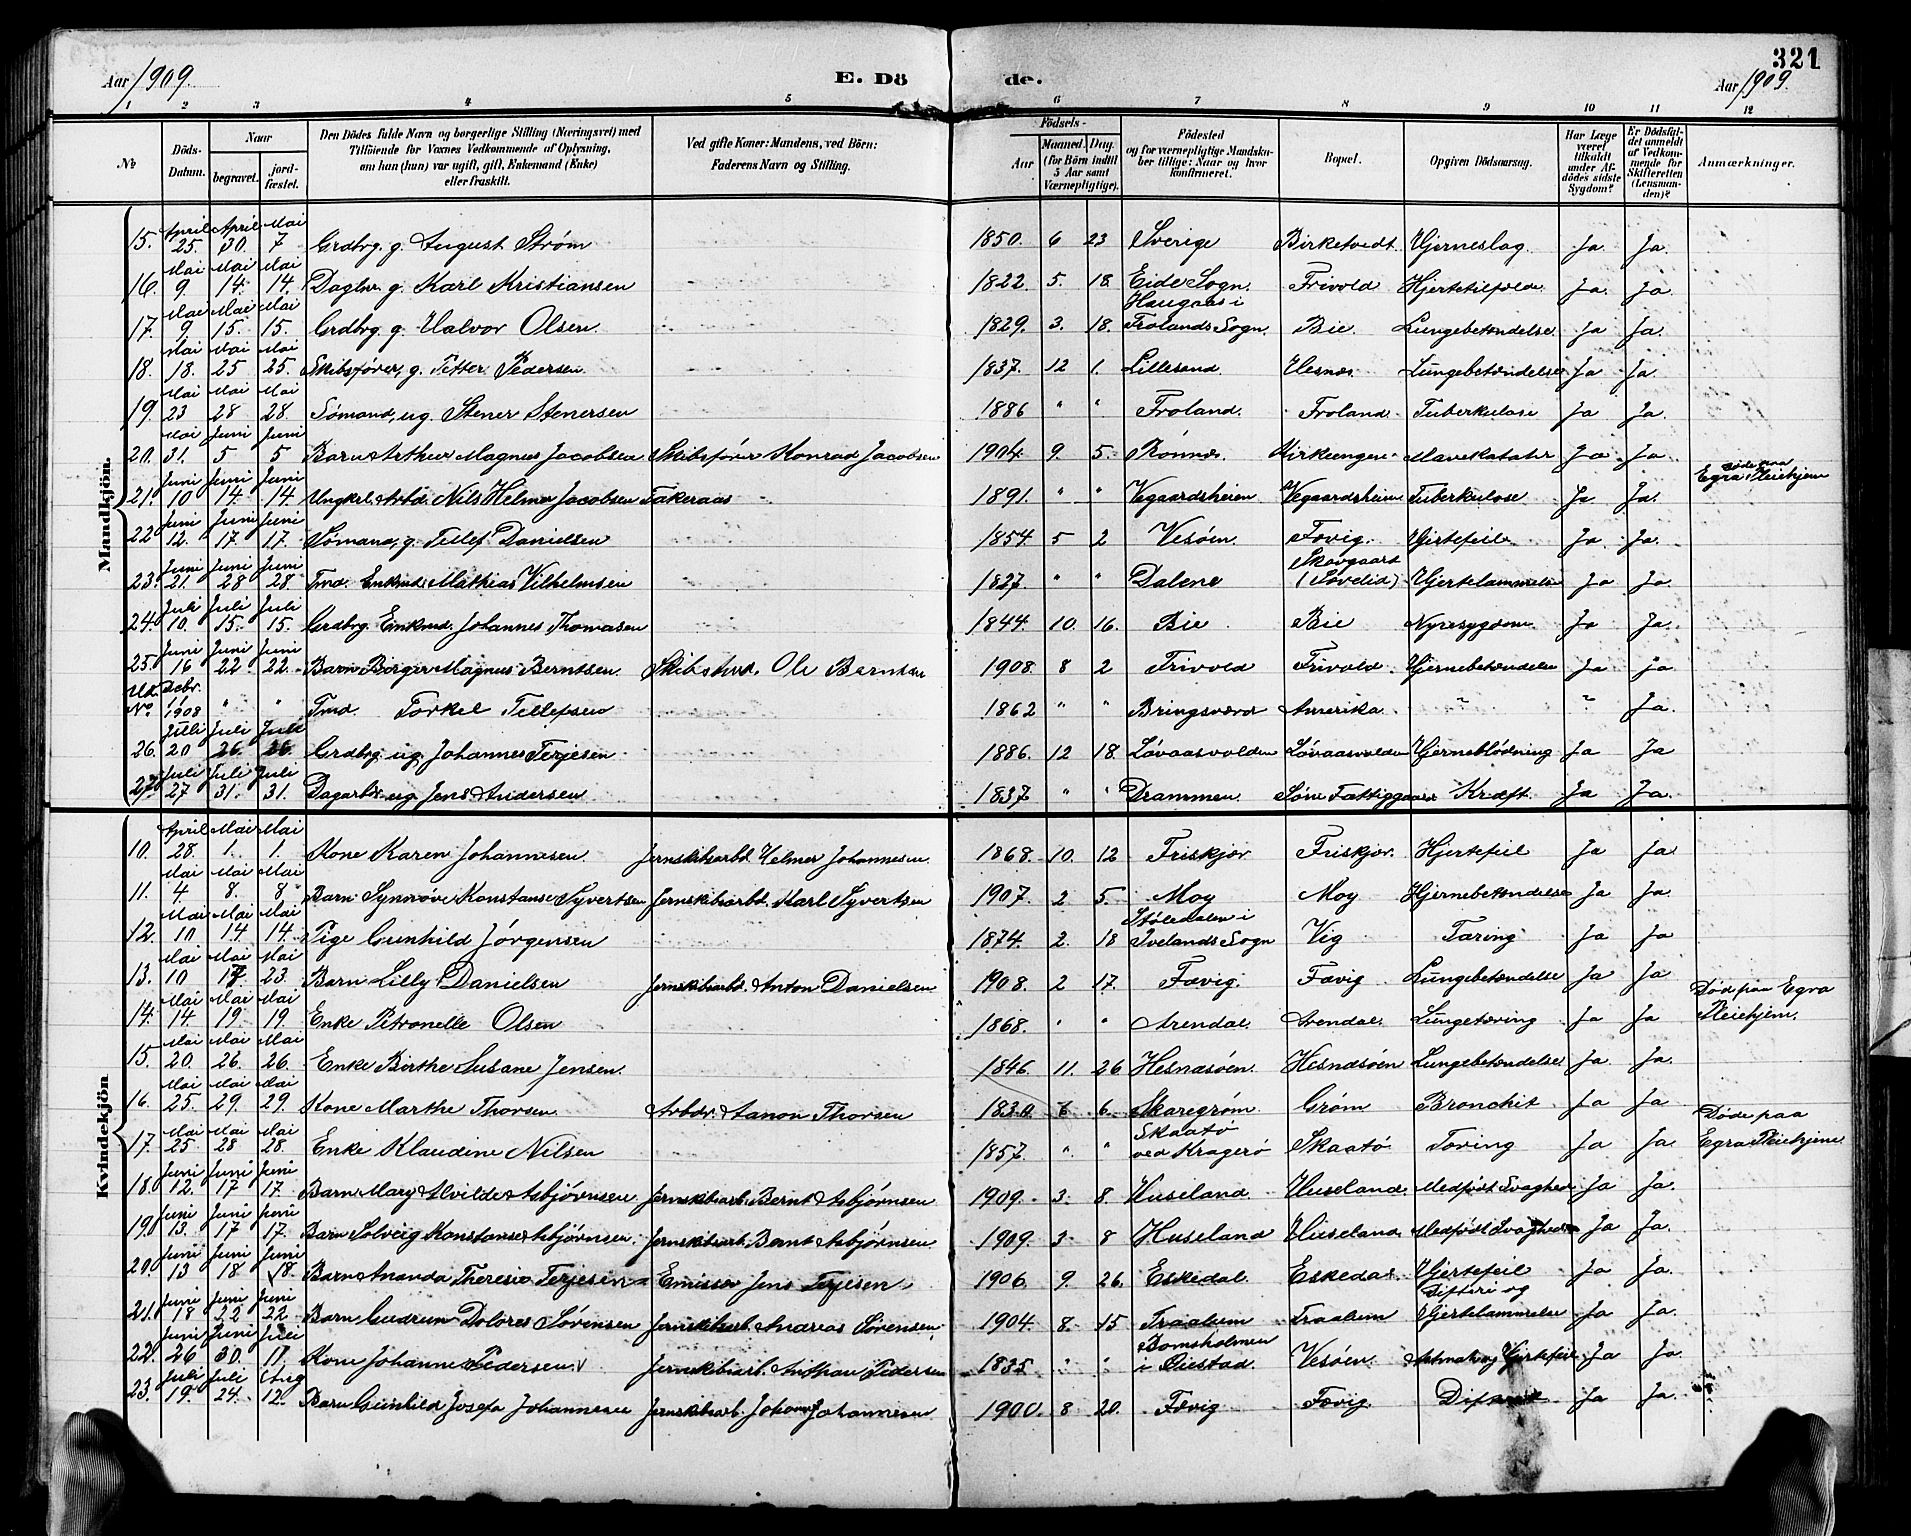 321
Aar 1909. E. Dö de. Aar 1909.
1 2 3 4 5 6 7 8 9 10 11 12
No Döds-Datum. Naar begravet. jordfæstet. Den Dödes fulde Navn og borgerlige Stilling (Næringsvei) med Tilföiende for Voxnes Vedkommende af Oplysning, om han (hun) var ugift, gift, Enkemand (Enke) eller fraskilt. Ved gifte Koner: Mandens, ved Börn: Faderens Navn og Stilling. Födsels- Aar Maaned. Dag. (for Börn indtil 5 Aar samt Værnepligtige). Födested og for værnepligtige Mandskaber tillige: Naar og hvor konfirmeret. Bopæl. Opgiven Dödsaarsag. Har Læge været tilkaldt under Afdödes sidste Sygdom? Er Dödsfaldet anmeldt af Vedkommende for Skifteretten (Lensmanden)? Anmærkninger.
Mandkjön.
15. April 25. April 30. Mai 7 Grdbrg. g. August Strøm 1850. 6 23 Sverige Birketvedt Hjerneslag Ja Ja.
16. Mai 9 Mai 14. Mai 14. Daglnr. g. Karl Kristiansen 1822. 5. 18 Eide Sogn. Frivold Hjertetilfælde Ja. Ja.
17. Mai 9 Mai 15. Mai 15. Grdbrg. g. Halvor Olsen 1829. 3. 18. Haugaas i Frolands Sogn. Bie. Lungebetændelse Ja Ja.
18. Mai 18. Mai 25 Mai 25. Skibsfører, g. Petter Pedersen 1837. 12 1. Lillesand Hesnæs Lungebetændelse Ja Ja.
19. Mai 23 Mai 28 Mai 28. Sømand, ug. Stener Stenersen 1886 " " Froland. Froland Tuberkulose Ja Ja.
20. Mai 31. Juni 5 Juni 5 Barn Arthur Magnus Jacobsen Skibsfører Konrad Jacobsen 1904. 9. 5. Rønnes Kirkeengen Mavekatahr Ja Ja.
21. Juni 10 Juni 14. Juni 14 Ungkl. Arbd. Nils Helmer Jacobsen Takeraas 1891. " " Vegaardsheien Vegaardsheien Tuberkulose Ja Ja. Døde paa Egra Pleiehjem
22 Juni 12. Juni 17. Juni 17. Sømand, g. Tellef Danielsen 1854. 5 2 Vesøen. Fævig. Hjertefeil Ja. Ja.
23. Juni 21. Juni 28 Juni 28 Tmd. Enkmd. Mathias Vilhelmsen 1827. " " Dalene Skovgaart (Løvelid) Hjertelammelse Ja Ja.
24. Juli 10. Juli 15. Juli 15. Grdbrg. Enkmd. Johannes Thomasen 1844. 10. 16. Bie Bie Nyresygdom. Ja Ja.
25. Juni 16 Juni 22 Juni 22. Barn Borger Magnus Berntsen Skibstmd. Ole Berntsen 1908 8 2 Frivold Frivold. Hjernebetændelse Ja ja
Ud. No Debr. 1 1908 " " Tmd. Torkel Tellefsen 1862 " " Bringsværd Amerika. " " Ja.
26. Juli 20 Juli 26. Juli 26. Grdbrg. ug. Johannes Terjesen 1886. 12 18. Løvaasvolden Løvaasvolden Hjerneblødning Ja Ja
27. Juli 27 Juli 31. Juli 31. Dagarbr. ug. Jens Andersen 1837 " " Drammen. Fattiggaard Kræft. Ja Ja.
Kvindekjön
10. April 28. Mai 1. Mai 1. Kone Karen Johannesen Jernskibsarbd. Helmer Johannesen 1868. 10. 12 Friskjær Friskjær. Hjertefeil Ja Ja.
11. Mai 4 Mai 8. Mai 8 Barn Synnøve Konstanse Syvertsen Jernskibsarbd. Karl Syvertsen 1907. 2 5. Moy Moy Hjernebetændelse Ja Ja.
12. Mai 10 Mai 14. Mai 14. Pige Gunhild Jørgensen 1874. 2. 18 Støledalen i Ivelands Sogn Vig Tæring Ja Ja
13. Mai 10 Mai 17 Mai 23 Barn Lilly Danielsen Jernskibsarbd. Anton Danielsen 1908. 2 17. Fævig. Fævig Lungebetændelse Ja Ja
14. Mai 14. Mai 19. Mai 19. Enke Petronelle Olsen 1868. " " Arendal. Arendal. Lungetæring Ja Ja Døde paa Egra Pleiehjem.
15. Mai 20 Mai 26. Mai 26. Enke Birthe Susane Jensen. 1846. 11. 26 Hesnæsøen. Hesnæsøen Lungebetændelse Ja Ja.
16. Mai 25 Mai 29. Mai 29. Kone Marthe Thorsen Arbdr. Aanon Thorsen 1830. 6 6. Skaregrøm Grøm Bronchit Ja Ja.
17. Mai 25 Mai 28 Mai 28. Enke Klaudine Nilsen 1857. " " Skaatø ved Kragerø Skaatø Tæring Ja Ja. Døde paa Egra Pleiehjem
18. Juni 12. Juni 17 Juni 17. Barn Mary Alvilde Asbjørnsen Jernskibsarb. Bernt Asbjørnsen 1909. 3. 8. Huseland Huseland. Medfødt Svaghed Ja Ja.
19. Juni 13. Juni 17 Juni 17. Barn Solveig Konstanse Asbjørnsen. Jernskibsarb. Bernt Asbjørnsen 1909. 3 8 Huseland Huseland Medfødt Svaghed Ja Ja.
20. Juni 13 Juni 18 Juni 18. Barn Ananda Theresie Terjesen Emissær Jens Terjesen 1906. 9. 26. Eskedal. Eskedal Hjertefeil Ja Ja.
21. Juni 18 Juni 22 Juni 22. Barn Gudrun Dolores Sørensen Jernskibsarb. Andreas Sørensen 1904. 8. 15 Traalum Traalum Difteri og Hjertelammelse Ja Ja.
22. Juni 26 Juni 30. Juli 11. Kone Johanne Pedersen Jernskibsarb. Pedersen 1835 " " Bomsholmen i Øiestad. Vesøen. Astma og Hjertefeil Ja Ja.
23. Juli 19. Juli 24. Aug 12. Barn Gunhild Josefa Johannesen Jernskibsarb. Johan Johannesen 1900. 8 20. Fævig Fævig. Ja Ja.